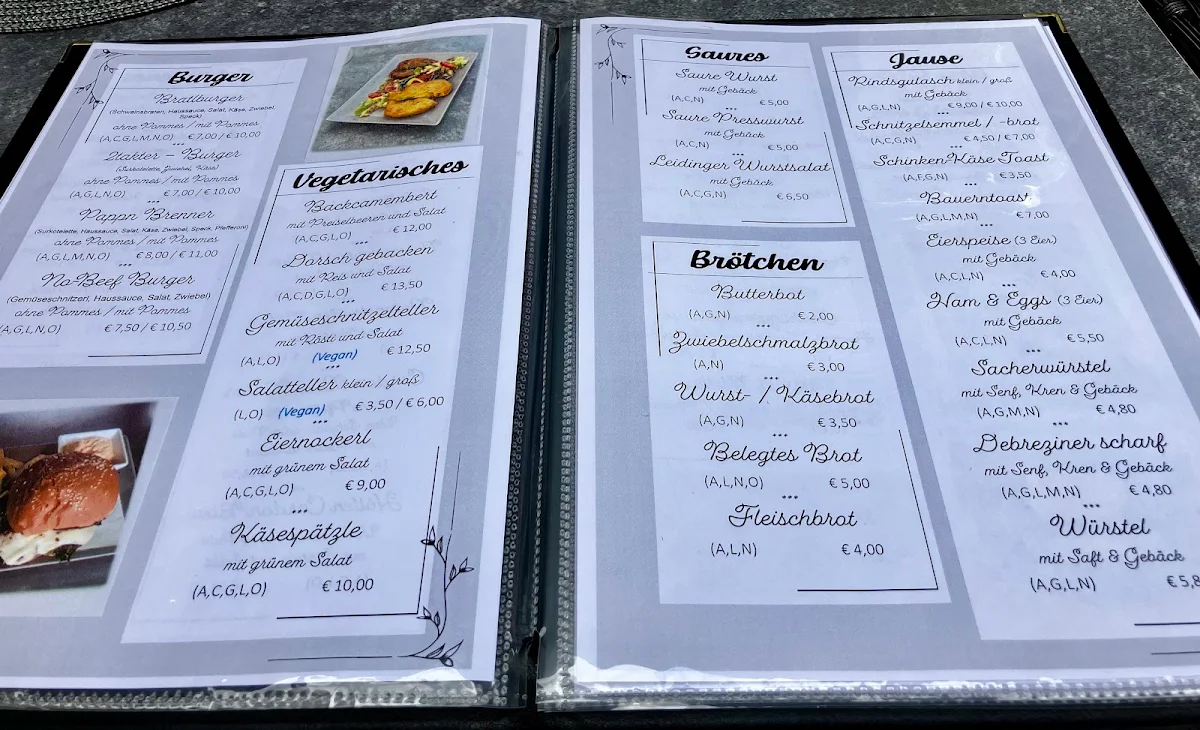 Burger
Bratlburger
(Schweinsbraten, Haussauce, Salat, Käse, Zwiebel,
Speck)
ohne Pommes / mit Pommes
(A,C,G,L,M,N,O) € 7,00 / € 10,00
...
2takter - Burger
(Surkotelette, Zwiebel, Käse)
ohne Pommes / mit Pommes
(A,G,L,N,O) € 7,00 / € 10,00
...
Pappn Brenner
(Surkotelette, Haussauce, Salat, Käse, Zwiebel, Speck, Pfefferoni)
ohne Pommes / mit Pommes
(A,G,L,M,N,O) € 8,00 / € 11,00
...
No-Beef Burger
(Gemüseschnitzerl, Haussauce, Salat, Zwiebel)
ohne Pommes / mit Pommes
(A,G,L,N,O) € 7,50 / € 10,50
Vegetarisches
Backcamembert
mit Preiselbeeren und Salat
(A,C,G,L,O) € 12,00
...
Dorsch gebacken
mit Reis und Salat
(A,C,D,G,L,O) € 13,50
...
Gemüseschnitzelteller
mit Rösti und Salat
(A,L,O) (Vegan) € 12,50
...
Salatteller klein / groß
(L,O) (Vegan) € 3,50 / € 6,00
...
Eiernockerl
mit grünem Salat
(A,C,G,L,O) € 9,00
...
Käsespätzle
mit grünem Salat
(A,C,G,L,O) € 10,00
Saures
Saure Wurst
mit Gebäck
(A,C,N) € 5,00
...
Saure Presswurst
mit Gebäck
(A,C,N) € 5,00
...
Leidinger Wurstsalat
mit Gebäck
(A,C,G,N) € 6,50
Brötchen
Butterbot
(A,G,N) € 2,00
...
Zwiebelschmalzbrot
(A,N) € 3,00
...
Wurst- / Käsebrot
(A,G,N) € 3,50
...
Belegtes Brot
(A,L,N,O) € 5,00
...
Fleischbrot
(A,L,N) € 4,00
Jause
Rindsgulasch klein / groß
mit Gebäck
(A,G,L,N) € 9,00 / € 10,00
...
Schnitzelsemmel / -brot
(A,C,G,N) € 4,50 / € 7,00
...
SchinkenKäse Toast
(A,F,G,N) € 3,50
...
Bauerntoast
(A,G,L,M,N) € 7,00
...
Eierspeise (3 Eier)
mit Gebäck
(A,C,L,N) € 4,00
...
Ham & Eggs (3 Eier)
mit Gebäck
(A,C,L,N) € 5,50
...
Sacherwürstel
mit Senf, Kren & Gebäck
(A,G,M,N) € 4,80
...
Debreziner scharf
mit Senf, Kren & Gebäck
(A,G,L,M,N) € 4,80
...
Würstel
mit Saft & Gebäck
(A,G,L,N) € 5,8